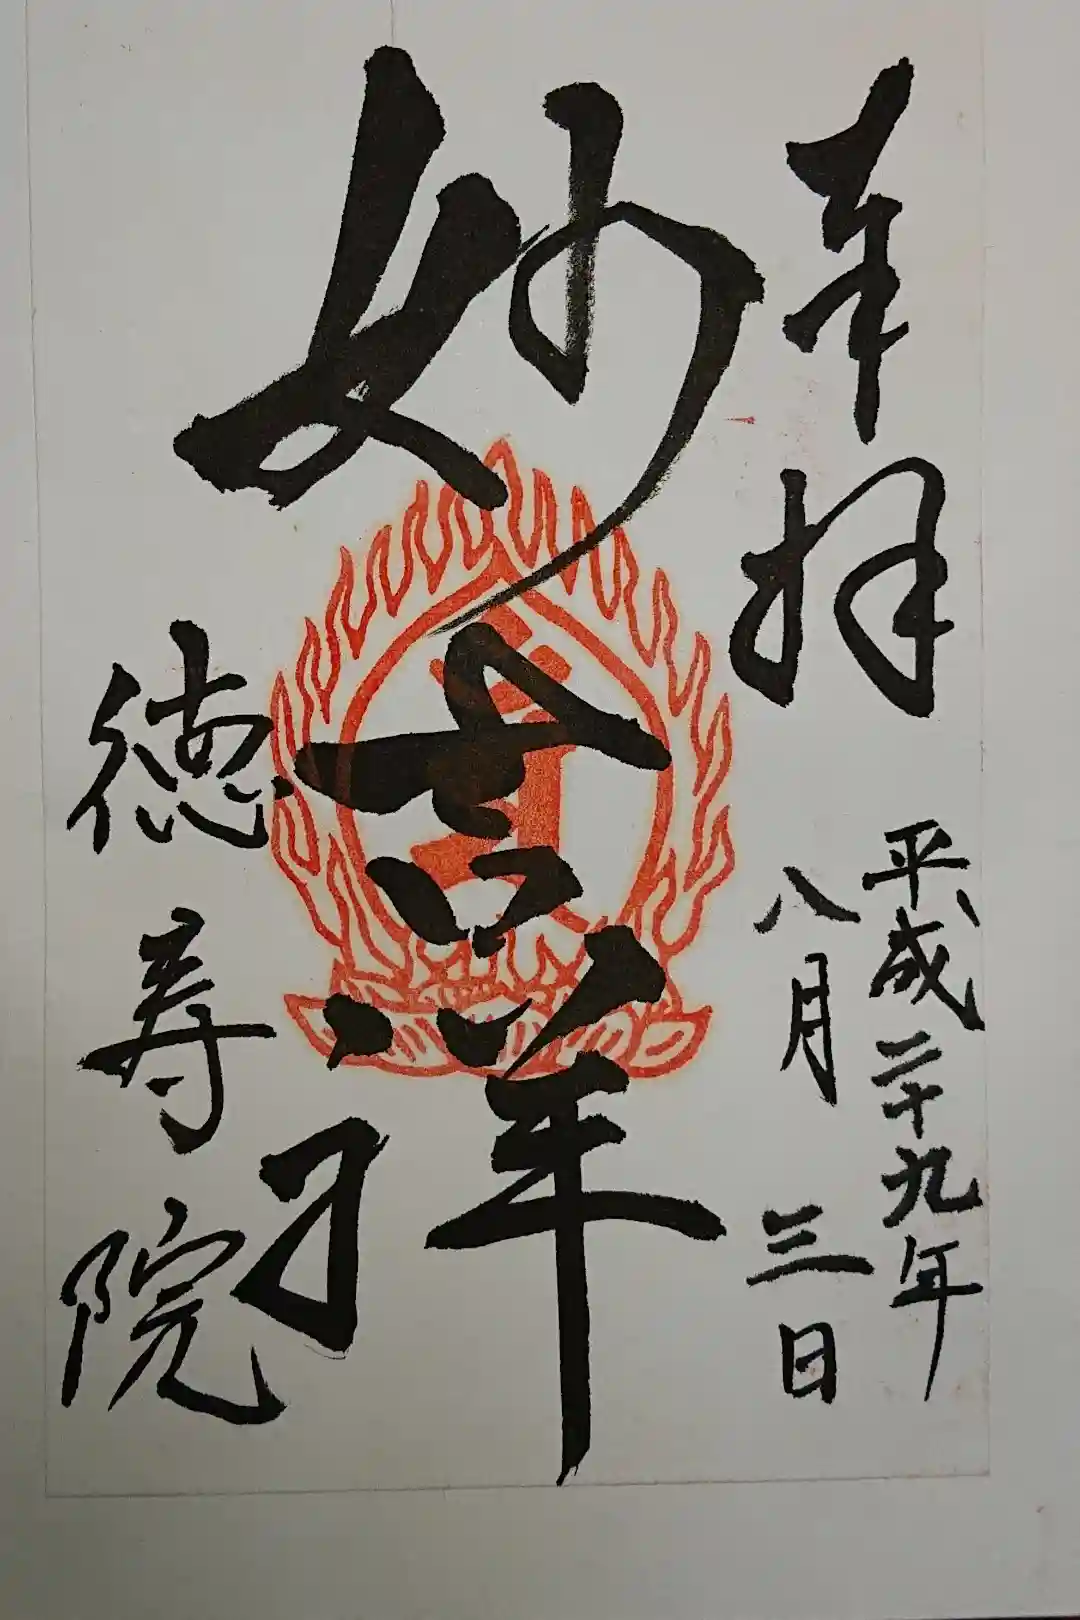 奉拝
平成二十九年
八月三日
妙吉祥
徳寿院